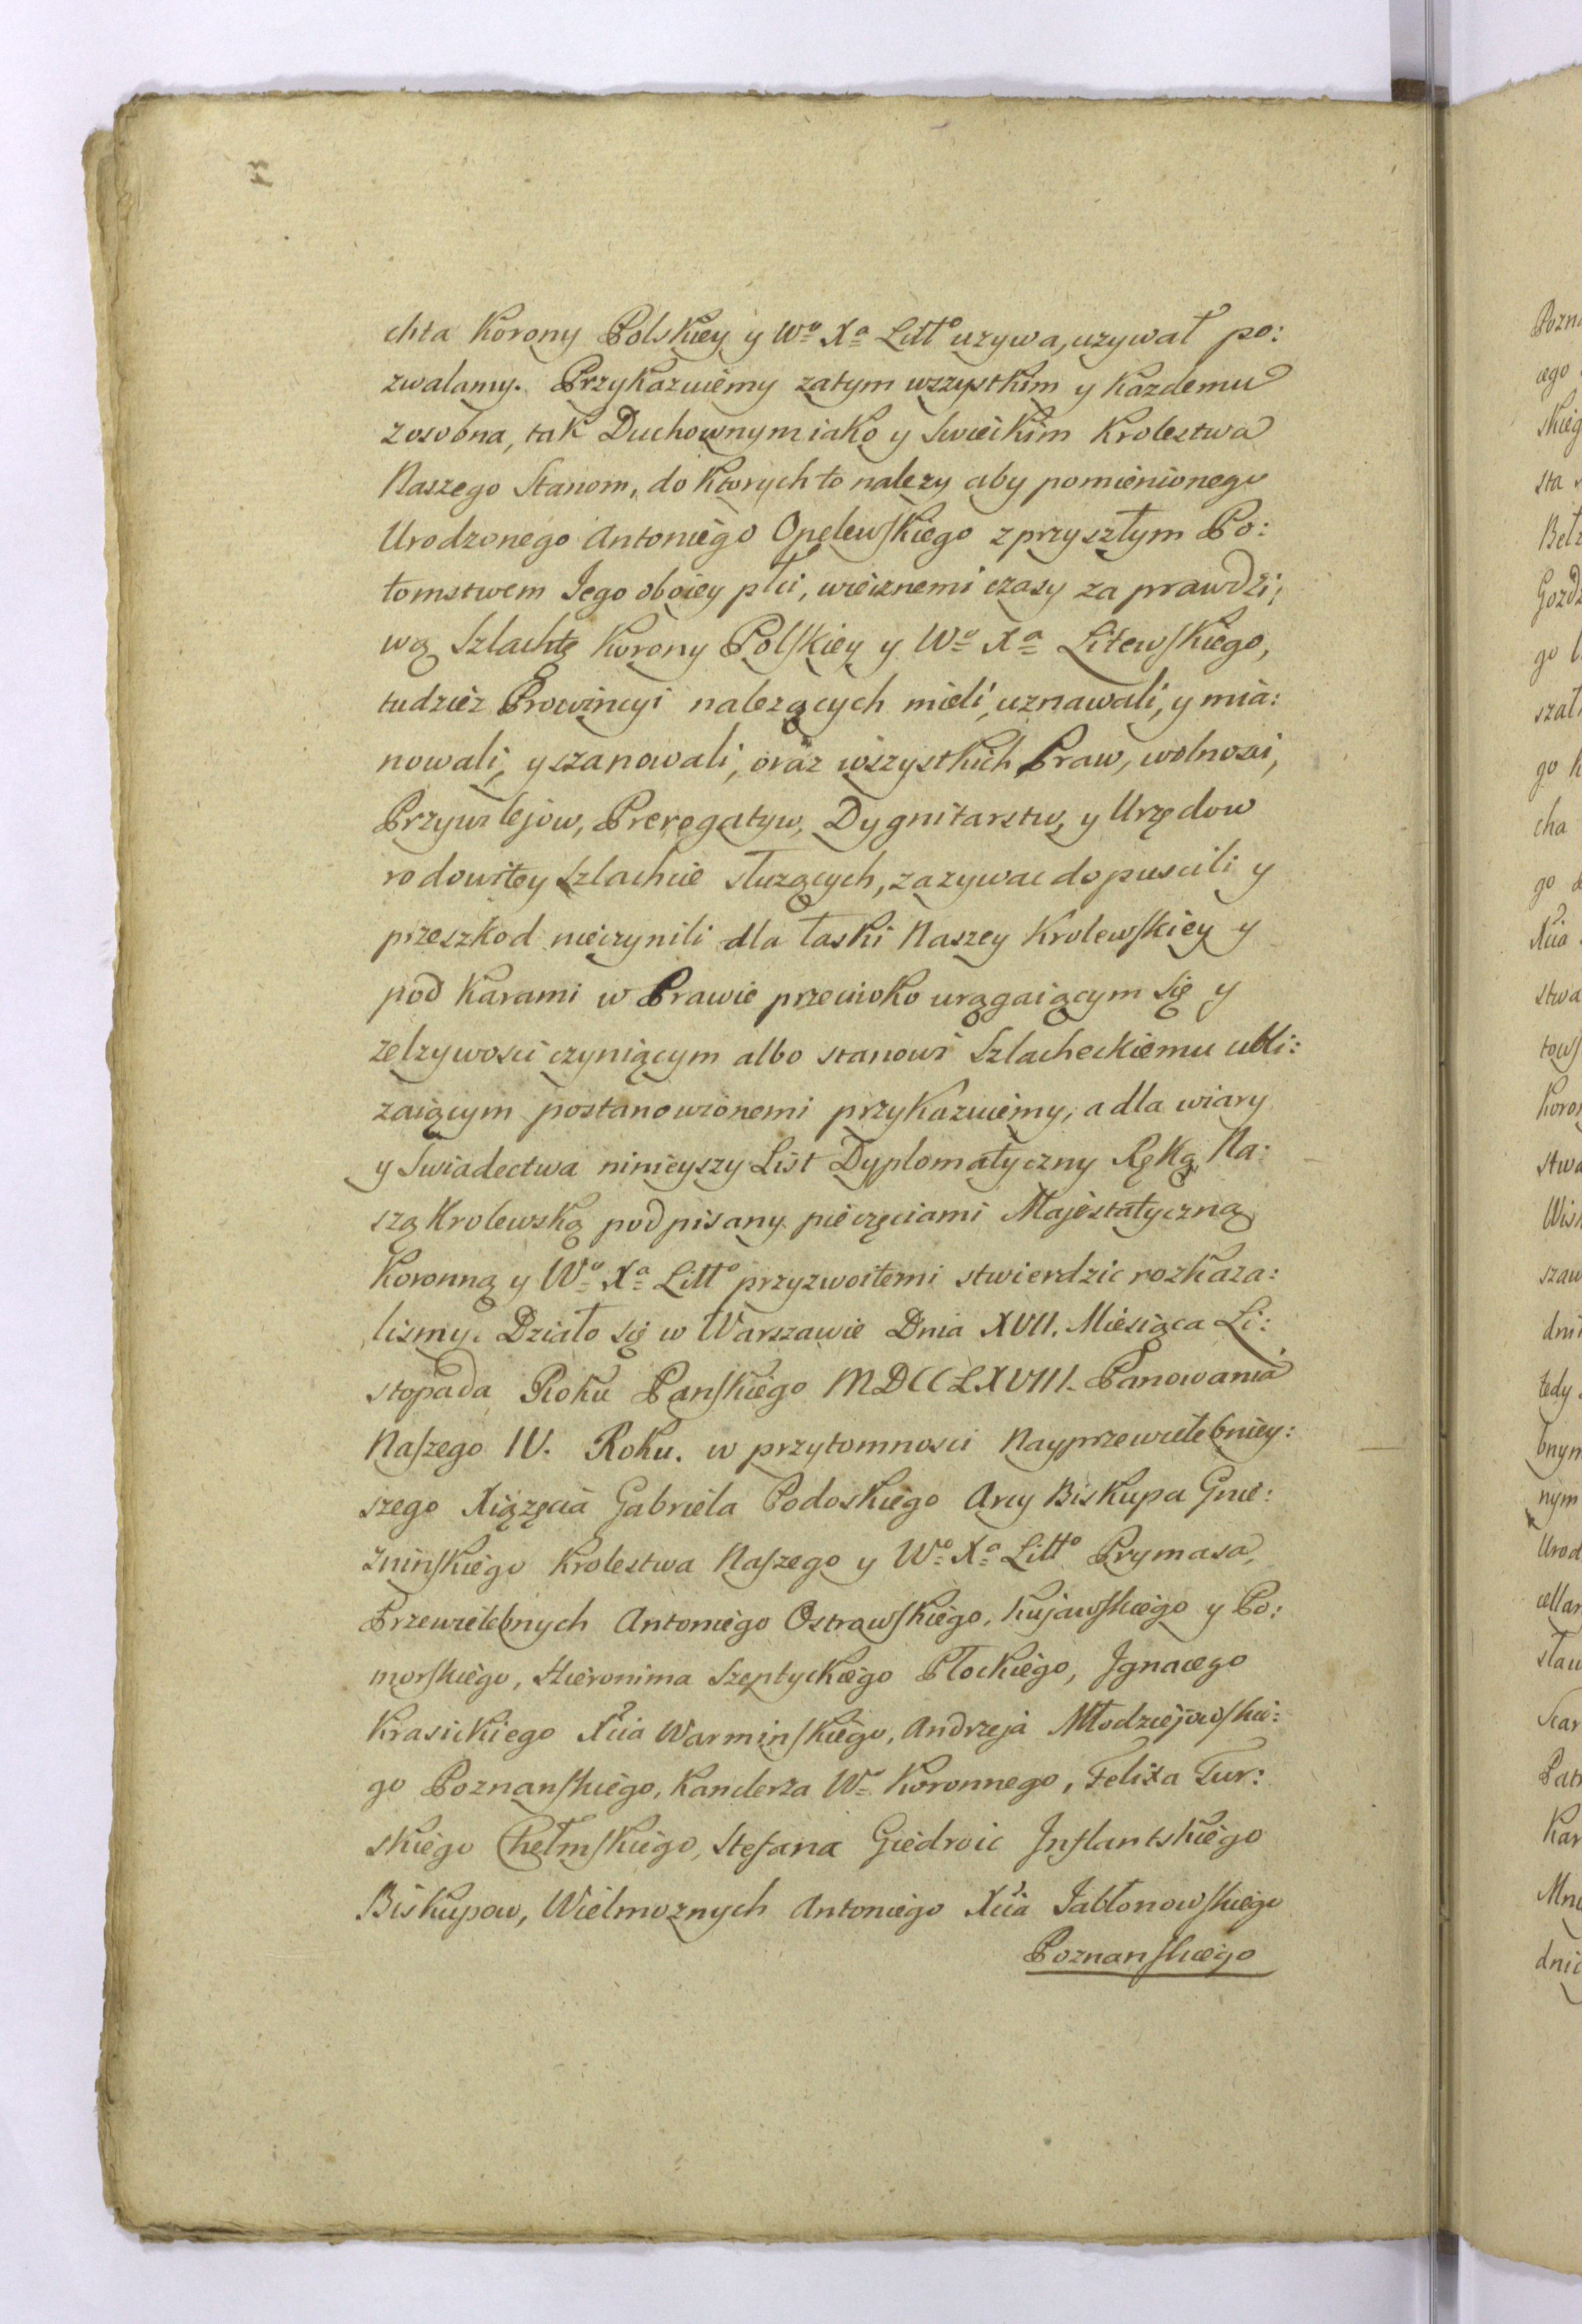 chta Korony Polskiey y Wo Xa Litto uzywa, uzywał po:
zwalamy. Przykazuiemy zatym wszystkim y kazdemu
z osobna, tak Duchownym iako y Swieckim Krolestwa
Naszego Stanom, do ktorych to nalezy aby pomienionego
Urodzonego Antoniego Opelewskiego z przyszłym Po:
tomstwem Jego oboiey płci, wiecznemi czasy za prawdzi;
wą Szlachtę Korony Polskiey y Wo Xa Litewskiego,
tudziez Prowincyi nalezących mieli, uznawali, y mia:
nowali, y szanowali, oraz wszystkich Praw, wolnosci,
Przywilejow, Prerogatyw, Dygnitarstw, y Urzędow
rodowitey Szlachcie słuzących, zazywac dopuscili y
przeszkod nieczynili dla łaski Naszey Krolewskiey y
pod Karami w Prawie przeciwko urągaiącym się y
zelzywosci czyniącym albo stanowi Szlacheckiemu ubli:
zaiącym postanowionemi przykazuiemy, a dla wiary
y Swiadectwa ninieyszy List Dyplomatyczny Ręką Na:
szą Krolewską podpisany pieczęciami Majestatyczną
Koronną y Wo Xa Litto przyzwoitemi stwierdzic rozkaza:
lismy. Działo się w Warszawie Dnia XVII. Miesiąca Li:
stopada Roku Panskiego MDCCLXVIII. Panowania
Naszego IV. Roku. w przytomnosci Nayprzewielebniey:
szego Xiązęcia Gabriela Podoskiego Arcy Biskupa Gnie:
zninskiego Krolestwa Naszego y Wo Xa Litto Prymasa,
Przewielebnych Antoniego Ostrawskiego, Kujawskiego y Po:
morskiego, Hieronima Szeptyckiego Płockiego, Jgnacego
Krasickiego Xcia Warminskiego, Andrzeja Młodziejowskie:
go Poznanskiego, Kanclerza Wo Koronnego, Felixa Tur:
skiego Chełmskiego, Stefana Giedroic Jnflantskiego
Biskupow, Wielmoznych Antoniego Xcia Jabłonowskiego
Poznanskiego